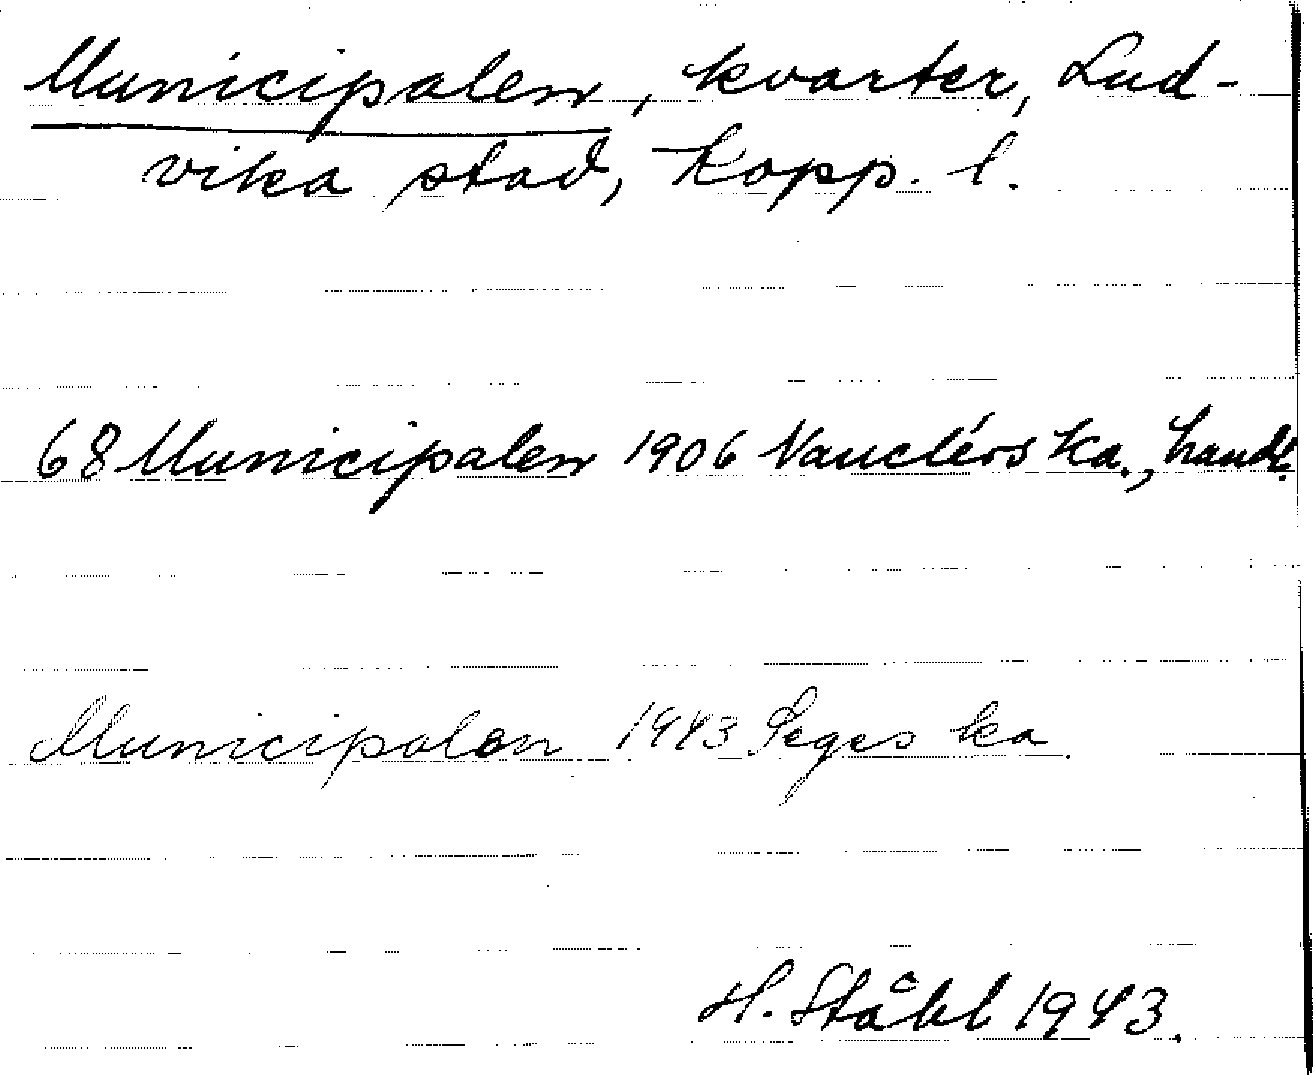 Municipalen, kvarter, Lud-
vika stad, Kopp. l.
68 Municipalen 1906 Vanclérs ka., handl.
Municipalen 1943 Seges ka.
H. Ståhl 1943.